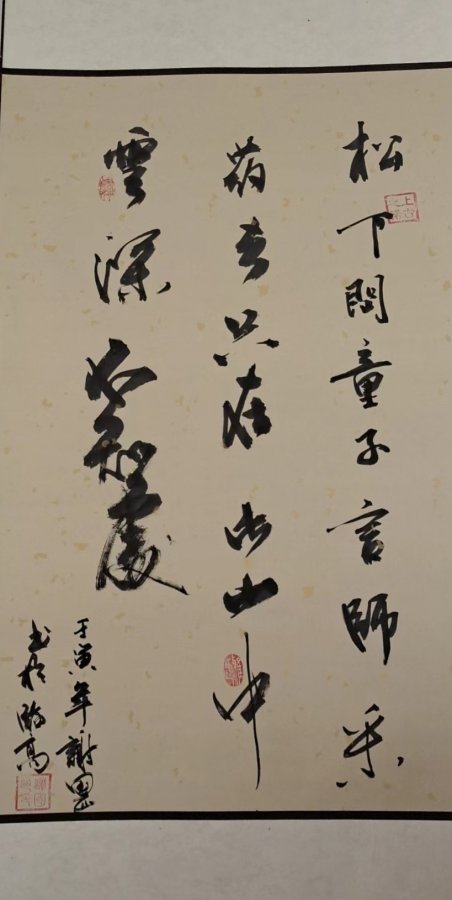 松下問童子言師采
葯去只在此山中
雲深不知處
壬寅年謝
书於